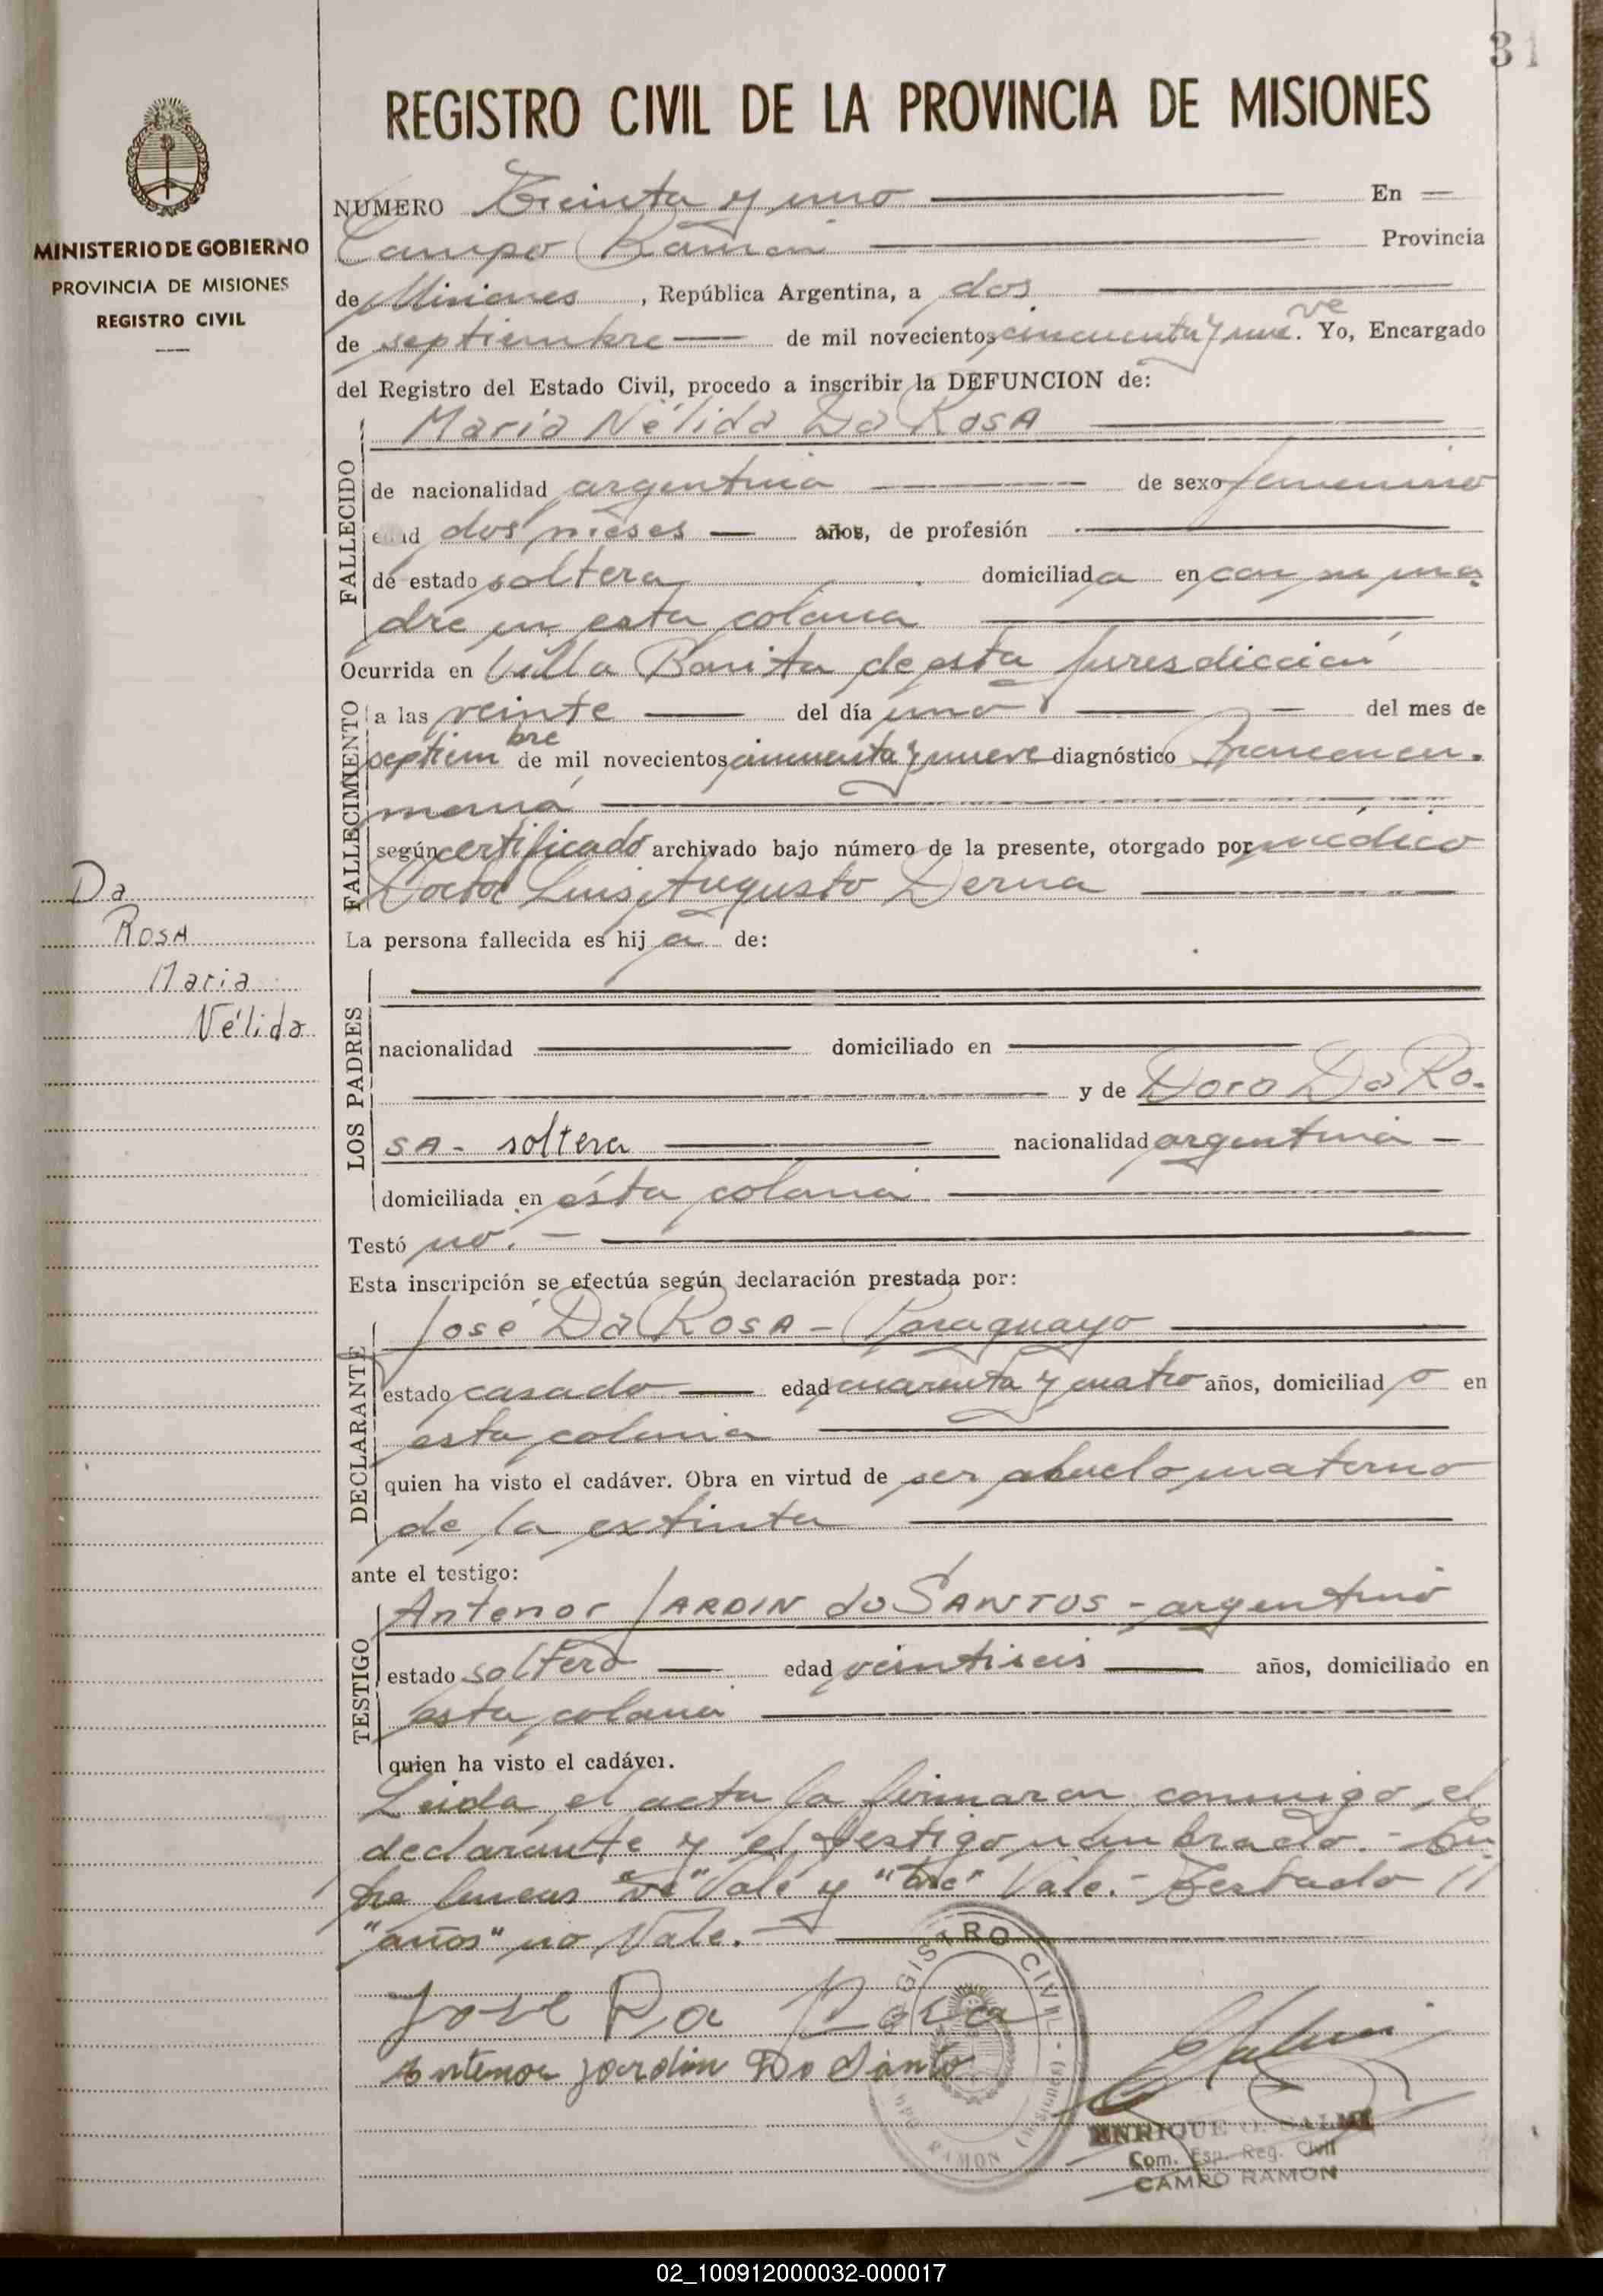 31
REGISTRO CIVIL DE LA PROVINCIA DE MISIONES
MINISTERIO DE GOBIERNO
PROVINCIA DE MISIONES
REGISTRO CIVIL
NUMERO Treinta y uno En
Campo Ramón Provincia
de Misiones, República Argentina, a dos
de septiembre de mil novecientos cincuenta y nueve. Yo, Encargado
del Registro del Estado Civil, procedo a inscribir la DEFUNCION de:
María Nélida Da ROSA
FALLECIDO
de nacionalidad argentina de sexo femenino
edad dos meses años, de profesión
de estado soltera domiciliada en con su ma
dre en esta colonia
Ocurrida en Villa Bonita de esta Jurisdicción
FALLECIMIENTO
a las veinte del día uno del mes de
septiembre de mil novecientos cincuenta y nueve diagnóstico Bronconeu-
monía
según certificado archivado bajo número de la presente, otorgado por médico
Doctor Luis Augusto Derna
Da
ROSA
Maria
Nélida
La persona fallecida es hija de:
LOS PADRES
nacionalidad domiciliado en
y de Dora Da Ro-
SA - soltera nacionalidad argentina
domiciliada en ésta colonia
Testó no.
Esta inscripción se efectúa según declaración prestada por:
DECLARANTE
José Da ROSA - Paraguayo
estado casado edad cuarenta y cuatro años, domiciliado en
esta colonia
quien ha visto el cadáver. Obra en virtud de ser abuelo materno
de la extinta
ante el testigo:
TESTIGO
Antenor JARDIN do SANTOS - argentino
estado soltero edad veintiseis años, domiciliado en
esta colonia
quien ha visto el cadáver.
Leida el acta la firmaron conmigo, el
declarante y el testigo nombrado.- En
tre lineas "ve" Vale y "bre" Vale.- Testado
"años" no Vale.
José Da Rosa
Antenor Jardin Do Santo
REGISTRO CIVIL
RAMON (Misiones)
ENRIQUE O. SALMI
Com. Esp. Reg. Civil
CAMPO RAMON
02_100912000032-000017